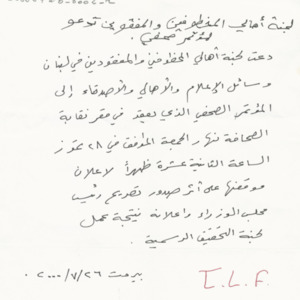 لجنة أهالي المخطوفين والمفقودين تدعو
لمؤتمر صحفي
دعت لجنة أهالي المخطوفين والمفقودين في لبنان
وسائل الإعلام والأهالي والأصدقاء إلى
المؤتمر الصحفي الذي يعقد في مقر نقابة
الصحافة نهار الجمعة الموافق في ٢٨ تموز
الساعة الثانية عشرة ظهراً لاعلان
موقفها على أثر صدور تصريح رئيس
مجلس الوزراء واعلانه نتيجة عمل
لجنة التحقيق الرسمية.
بيروت ٢٦/٧/٢٠٠٠.
I.L.F.